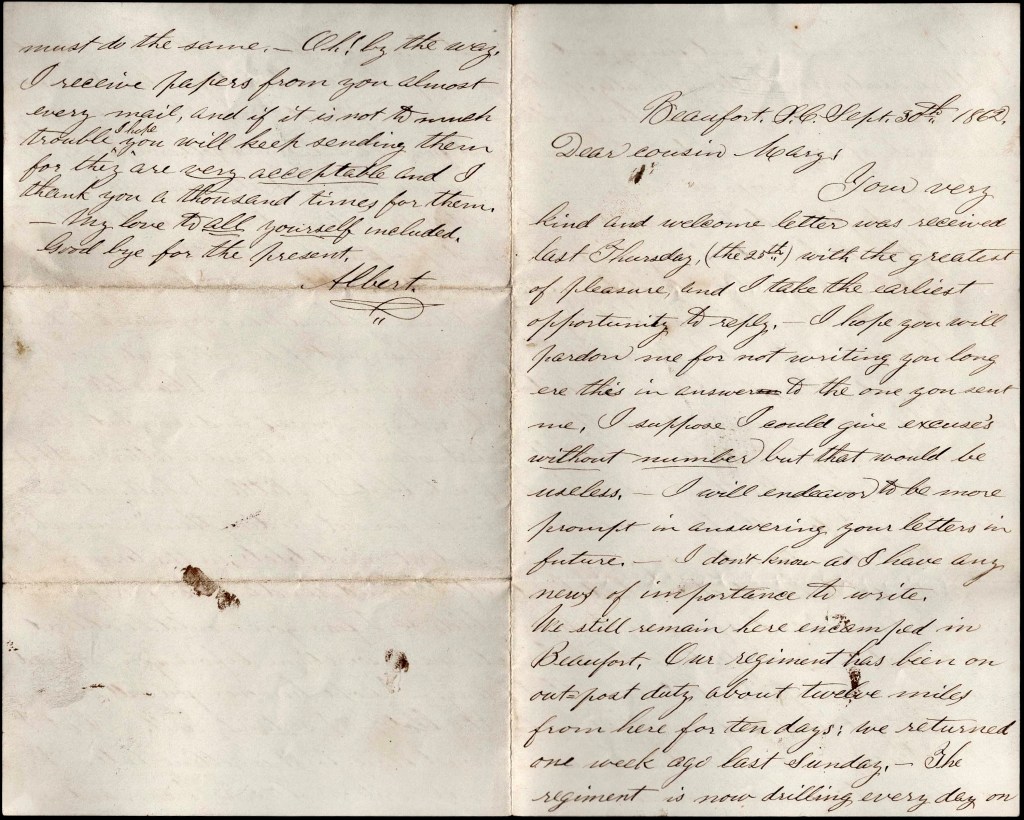 must do the same. — Oh! by the way,
I receive papers from you almost
every mail, and if it is not to much
trouble, I hope you will keep sending them
for they are very acceptable and I
thank you a thousand times for them.
— My love to all yourself included.
Good bye for the present,
Albert.
Beaufort. S.C. Sept. 30th. 1862.
Dear cousin Mary;
Your very
kind and welcome letter was received
last Thursday, (the 25th.) with the greatest
of pleasure, and I take the earliest
opportunity to reply. — I hope you will
pardon me for not writing you long
ere this in answer to the one you sent
me, I suppose I could give excuse's
without number but that would be
useless. — I will endeavor to be more
prompt in answering your letters in
future. — I don't know as I have any
news of importance to write.
We still remain here encamped in
Beaufort. Our regiment has been on
out=post duty about twelve miles
from here for ten days; we returned
one week ago last Sunday. — The
regiment is now drilling every day on